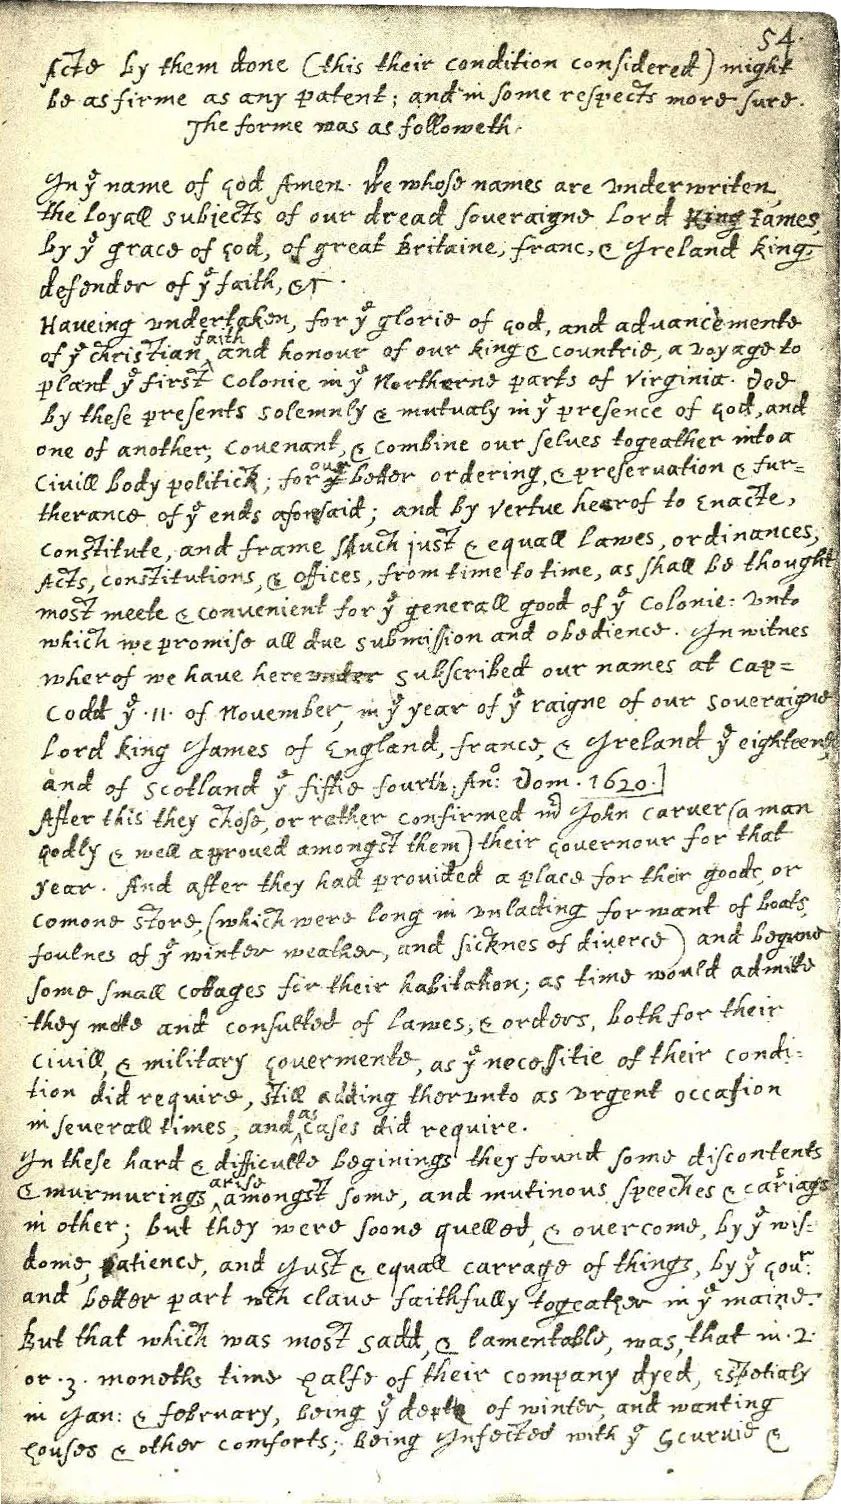 54.
Acte by them done (this their condition considered) might
be as firme as any patent; and in some respects more sure.
The forme was as followeth.
In yͤ name of God Amen. We whose names are underwriten,
the loyall subjects of our dread soveraigne Lord King James,
by yͤ grace of God, of great Britaine, franc, & Ireland king,
defender of yͤ faith, &c.
Haveing undertaken, for yͤ glorie of God, and advancemente
of yͤ christian ^faith and honour of our king & countrie, a voyage to
plant yͤ first colonie in yͤ Northerne parts of Virginia. Doe
by these presents solemnly & mutualy in yͤ presence of God, and
one of another; covenant, & combine our selves togeather into a
Civill body politick; for our yͤ better ordering, & preservation & fur=
therance of yͤ ends aforesaid; and by vertue hearof to Enacte,
constitute, and frame shuch just & equall lawes, ordinances,
Acts, constitutions, & offices, from time to time, as shall be thought
most meete & convenient for yͤ generall good of yͤ Colonie: unto
which we promise all due submission and obedience. In witnes
wherof we have hereunder subscribed our names at Cap=
Codd yͤ .11. of November, in yͤ year of yͤ raigne of our soveraigne
Lord king James of England, france, & Ireland yͤ eighteenth
and of Scotland yͤ fiftie fourth. Anº: Dom. 1620.]
After this they chose, or rather confirmed mʳ John Carver (a man
godly & well approved amongst them) their Governour for that
year. And after they had provided a place for their goods, or
comone store, (which were long in unlading for want of boats,
foulnes of yͤ winter weather, and sicknes of diverce) and begune
some small cottages for their habitation; as time would admitte
they mete and consulted of lawes, & orders, both for their
civill, & military Govermente, as yͤ necessitie of their condi=
tion did require, still adding therunto as urgent occasion
in severall times, and ^as cases did require.
In these hard & difficulte beginings they found some discontents
& murmurings ^arise amongst some, and mutinous speeches & cariags
in other; but they were soone quelled, & overcome, by yͤ wis=
dome, patience, and just & equall carrage of things, by yͤ Govʳ:
and better part wᶜʰ clave faithfully togeather in yͤ maine.
But that which was most sadd, & lamentable, was, that in .2.
or .3. moneths time halfe of their company dyed, espetialy
in Jan: & february, being yͤ depth of winter, and wanting
houses & other comforts; being Infected with yͤ Scurvie &